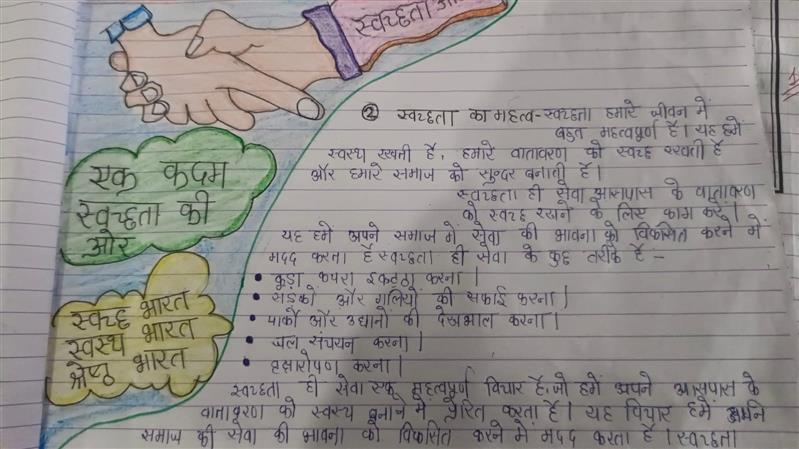 स्वच्छता
② स्वच्छता का महत्व-स्वच्छता हमारे जीवन में
बहुत महत्वपूर्ण है। यह हमें
स्वस्थ रखती है, हमारे वातावरण को स्वच्छ रखती है
और हमारे समाज को सुन्दर बनाती है।
स्वच्छता ही सेवा आसपास के वातावरण
को स्वच्छ रखने के लिए काम करें।
यह हमें अपने समाज में सेवा की भावना को विकसित करने में
मदद करता है स्वच्छता ही सेवा के कुछ तरीके है –
• कुड़ा कचरा इकट्ठा करना।
• सड़कों और गलियों की सफाई करना।
• पार्कों और उद्यानों की देखभाल करना।
• जल संचयन करना।
• वृक्षारोपण करना।
स्वच्छता ही सेवा एक महत्वपूर्ण विचार है, जो हमें अपने आसपास के
वातावरण को स्वस्थ बनाने में प्रेरित करता है। यह विचार हमें
समाज की सेवा की भावना को विकसित करने में मदद करता है। स्वच्छता
एक कदम
स्वच्छता की
ओर
स्वच्छ भारत
स्वस्थ भारत
श्रेष्ठ भारत